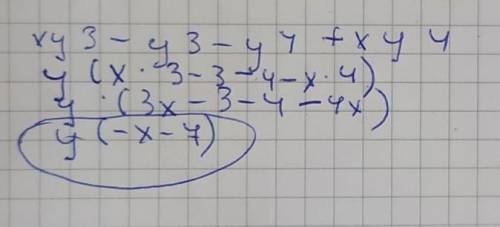 xy3-y3-y4+xy4
y(x·3-3-4-x·4)
y·(3x-3-4-4x)
y(-x-7)